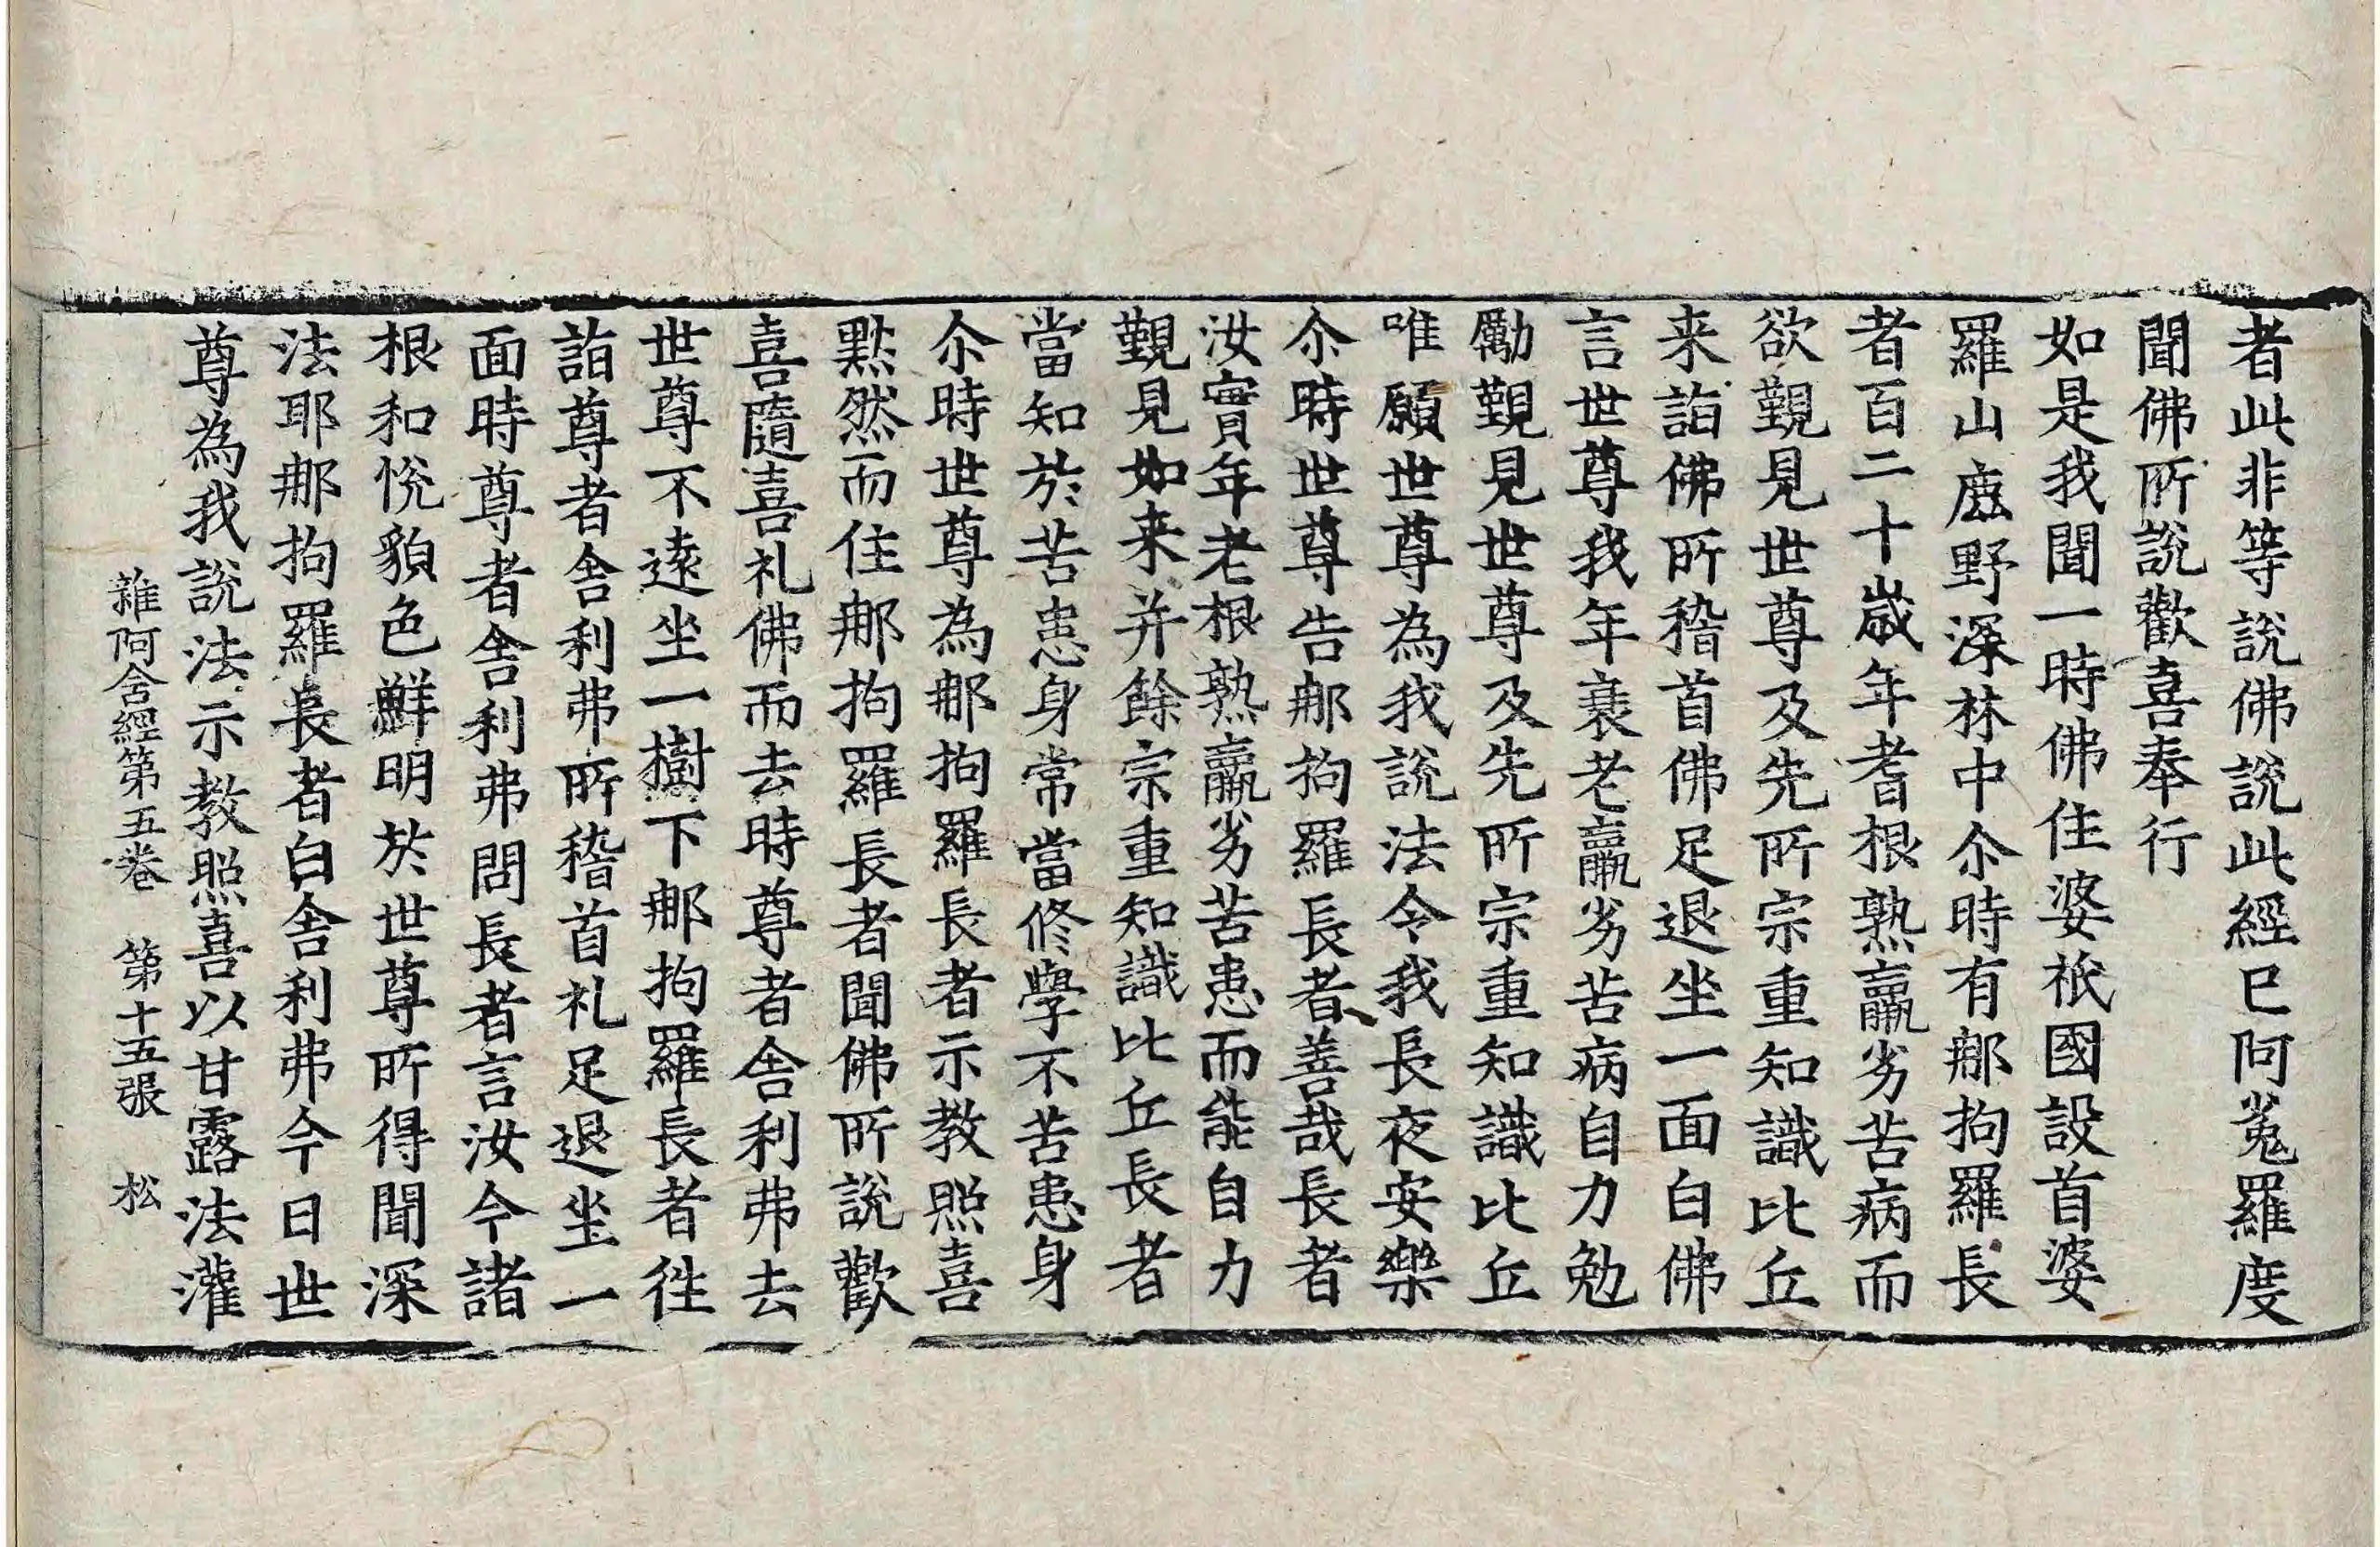 者此非等說佛說此經已阿㝹羅度
聞佛所說歡喜奉行
如是我聞一時佛住婆祇國設首婆
羅山鹿野深林中尒時有那拘羅長
者百二十歲年耆根熟羸劣苦病而
欲覲見世尊及先所宗重知識比丘
来詣佛所稽首佛足退坐一面白佛
言世尊我年衰老羸劣苦病自力勉
勵覲見世尊及先所宗重知識比丘
唯願世尊為我說法令我長夜安樂
尒時世尊告那拘羅長者善哉長者
汝實年老根熟羸劣苦患而能自力
覲見如来并餘宗重知識比丘長者
當知於苦患身常當修學不苦患身
尒時世尊為那拘羅長者示教照喜
黙然而住那拘羅長者聞佛所說歡
喜隨喜礼佛而去時尊者舍利弗去
世尊不遠坐一樹下那拘羅長者徃
詣尊者舍利弗所稽首礼足退坐一
面時尊者舍利弗問長者言汝今諸
根和悅貌色鮮明於世尊所得聞深
法耶那拘羅長者白舍利弗今日世
尊為我說法示教照喜以甘露法灌
雜阿含經第五卷　第十五張　松